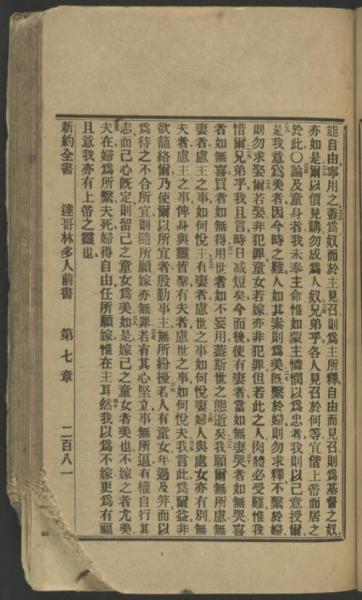 能自由寧用之蓋爲奴而於主見召則爲主所釋自由而見召則爲基督之奴
亦如是爾以價見購勿成爲人奴兄弟乎各人見召於何等宜偕上帝而居之
於此〇論及童身者我未奉主命惟如蒙主憐憫以爲忠者我則以己意授爾
是我意爲美者因今時之難人如其素則爲美旣繫於婦則勿求釋不繫於婦
則勿求娶爾若娶非犯罪童女若嫁亦非犯罪但若此之人肉體必受難惟我
惜爾兄弟乎我且言時日減短矣今而後使有妻者當如無妻哭者如無哭喜
者如無喜買者如無得用世者如不妄用蓋斯世之態逝矣我願爾無所慮無
妻者慮主之事如何悅主有妻者慮世之事如何悅妻婦人與處女亦有別無
夫者慮主之事俾身與靈皆聖有夫者慮世之事如何悅夫我言此爲爾益非
欲籠絡爾乃使爾以所宜者殷勤事主無所紛擾若人有童女年過及笄而以
爲待之不合所宜則隨所願嫁亦無罪若有其心堅立事無所逼有權自行其
志而己心旣定則留己之童女爲美如是嫁己之童女者美也不嫁之者尤美
夫在婦爲所繫夫死婦得自由任所願嫁惟在主耳然我以爲不嫁更爲有福
且意我亦有上帝之靈也
新約全書 達哥林多人前書 第七章 二百八一